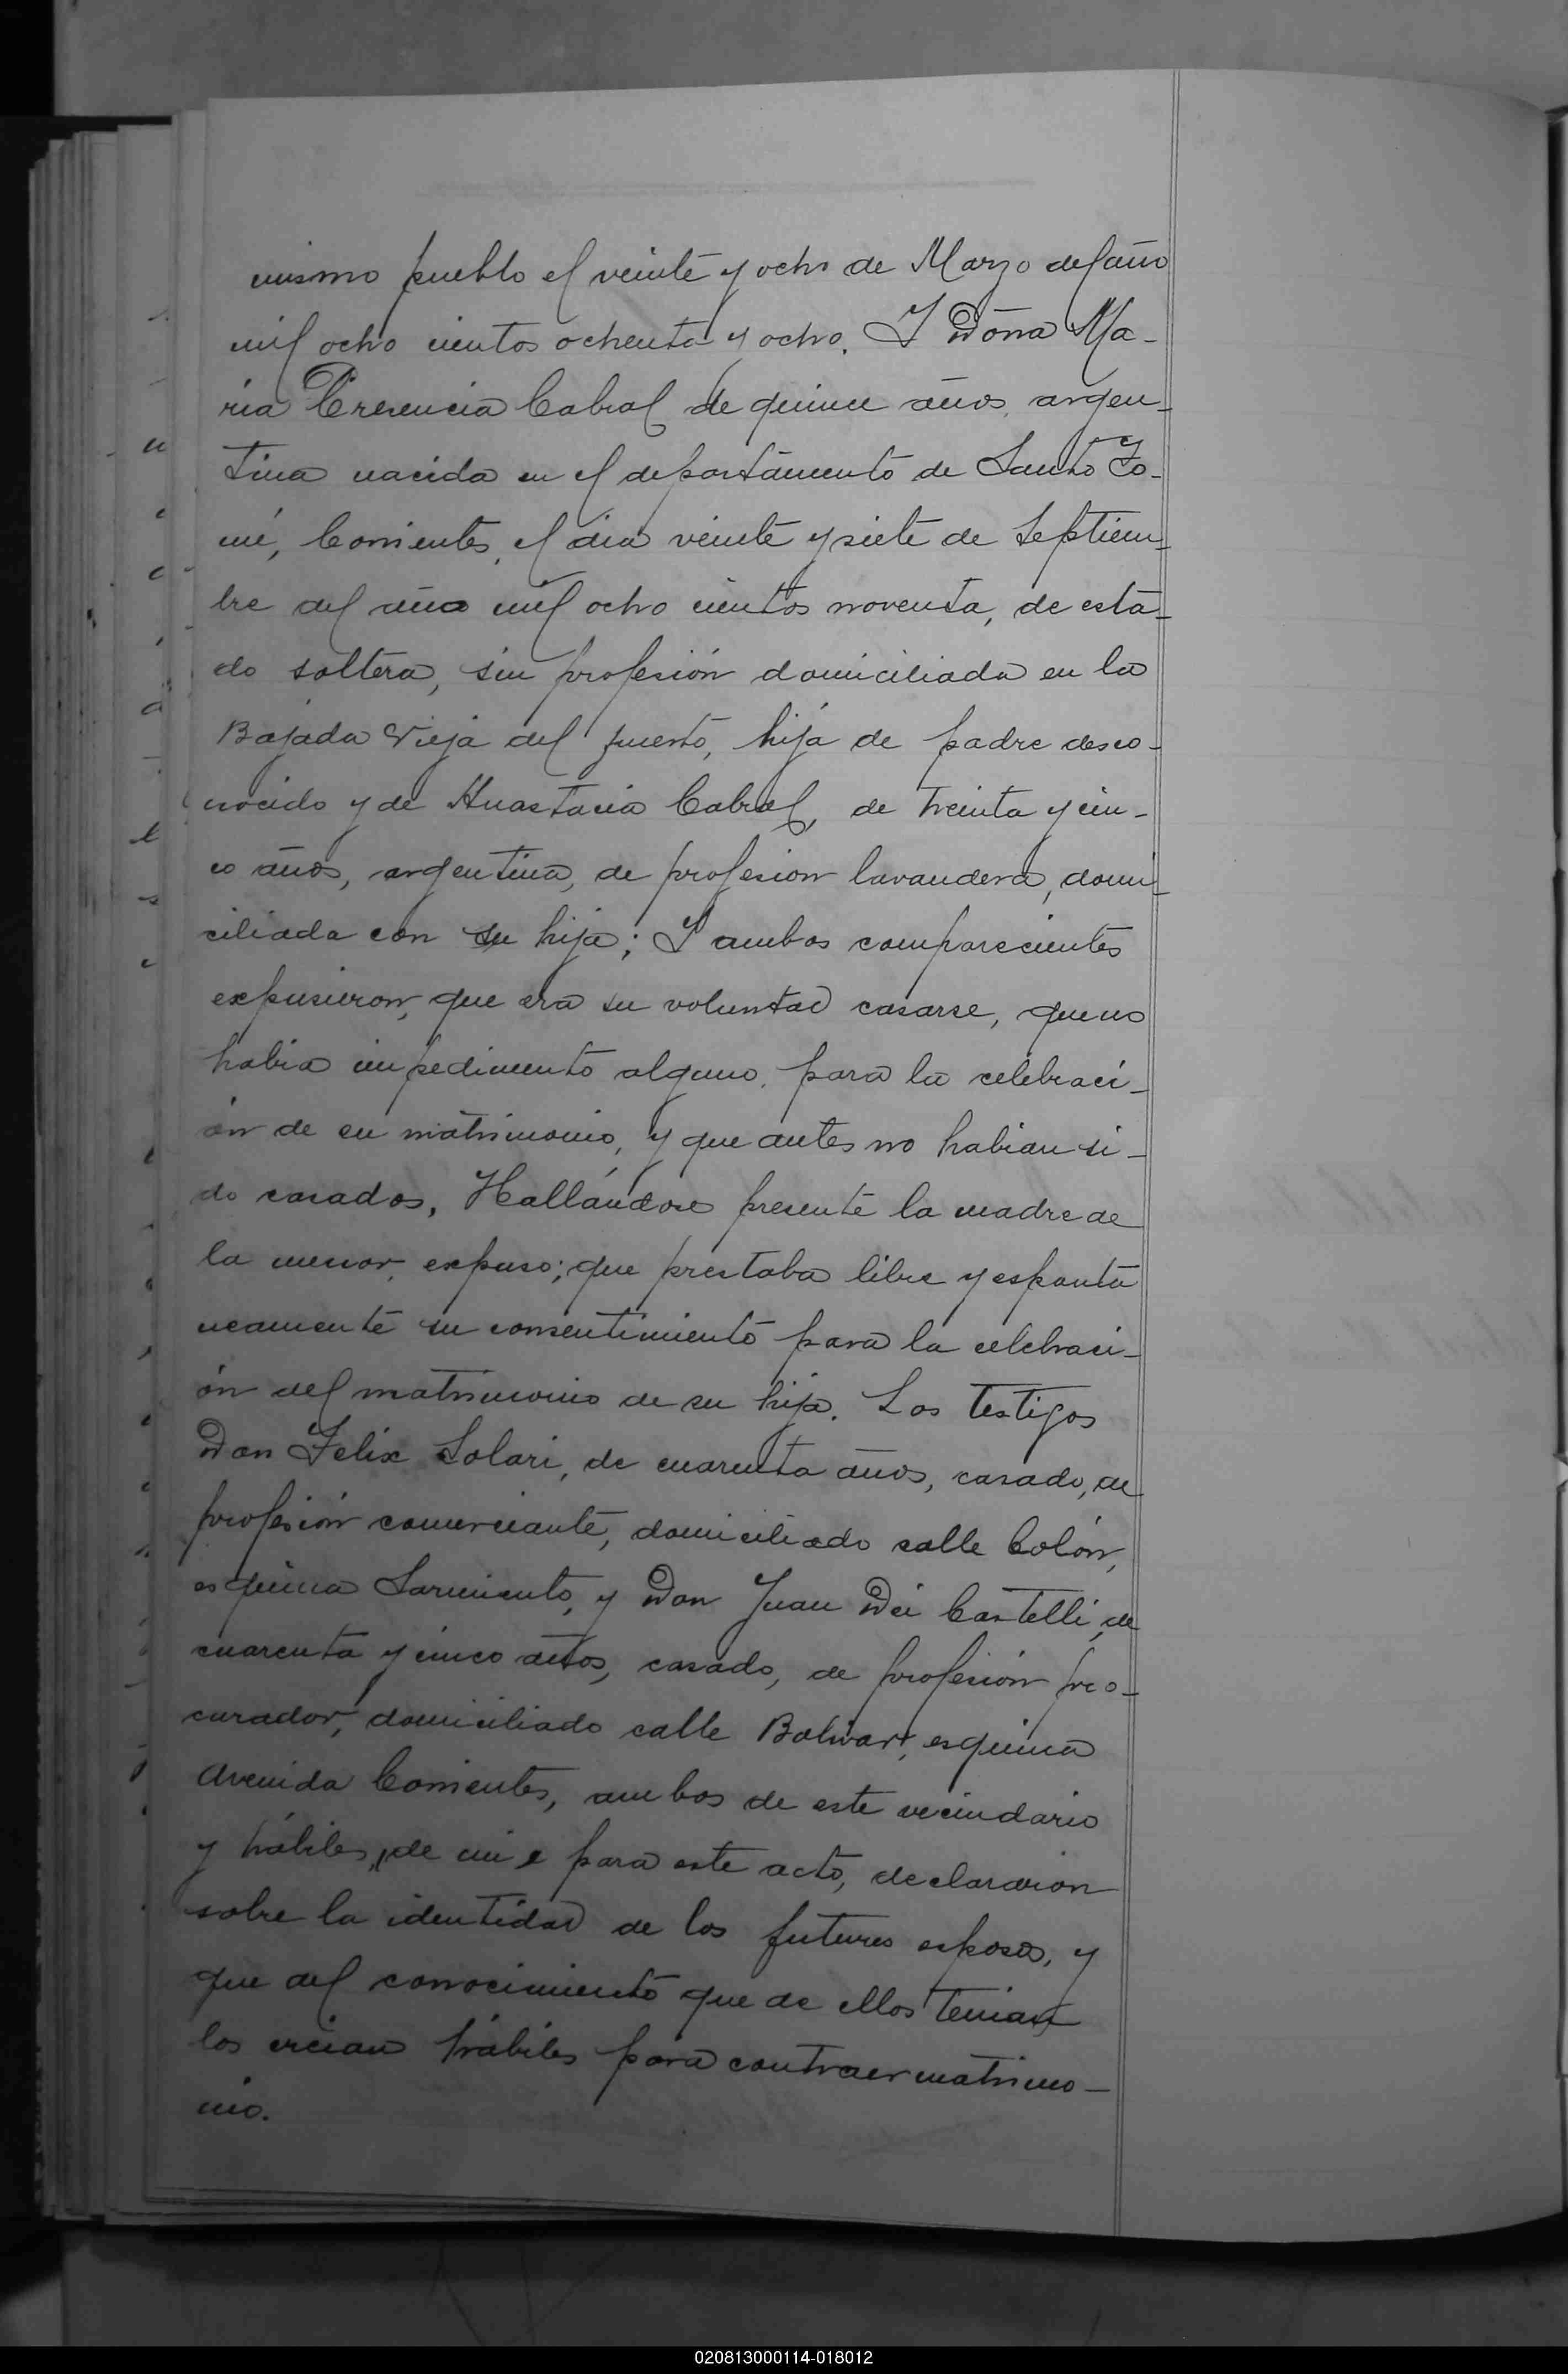 mismo pueblo el veinte y ocho de Marzo del año
mil ocho cientos ochenta y ocho. Y Doña Ma-
ria Cresencia Cabral de quince años, argen-
tina nacida en el departamento de Santo To-
mé, Corrientes, el dia veinte y siete de Septiem-
bre del año mil ocho cientos noventa, de esta-
do soltera, sin profesión domiciliada en la
Bajada Vieja del puerto, hija de padre desco-
nocido y de Anastacia Cabral, de treinta y cin-
co años, argentina, de profesion lavandera, domi-
ciliada con su hija; Y ambos comparecientes
expusieron, que era su voluntad casarse, que no
habia impedimento alguno para la celebraci-
ón de su matrimonio, y que antes no habian si-
do casados, Hallándose presente la madre de
la menor, expuso; que prestaba libre y espontá
neamente su consentimiento para la celebraci-
ón del matrimonio de su hija. Los testigos
Don Felix Solari, de cuarenta años, casado, de
profesión comerciante, domiciliado calle Colón,
esquina Sarmiento, y Don Juan Dei Castelli, de
cuarenta y cinco años, casado, de profesión pro-
curador, domiciliado calle Bolivar, esquina
Avenida Corrientes, ambos de este vecindario
y hábiles, de mi e para este acto, declararon
sobre la identidad de los futuros esposos, y
que del conocimiento que de ellos tenian
los creian hábiles para contraer matrimo-
nio.
020813000114-018012